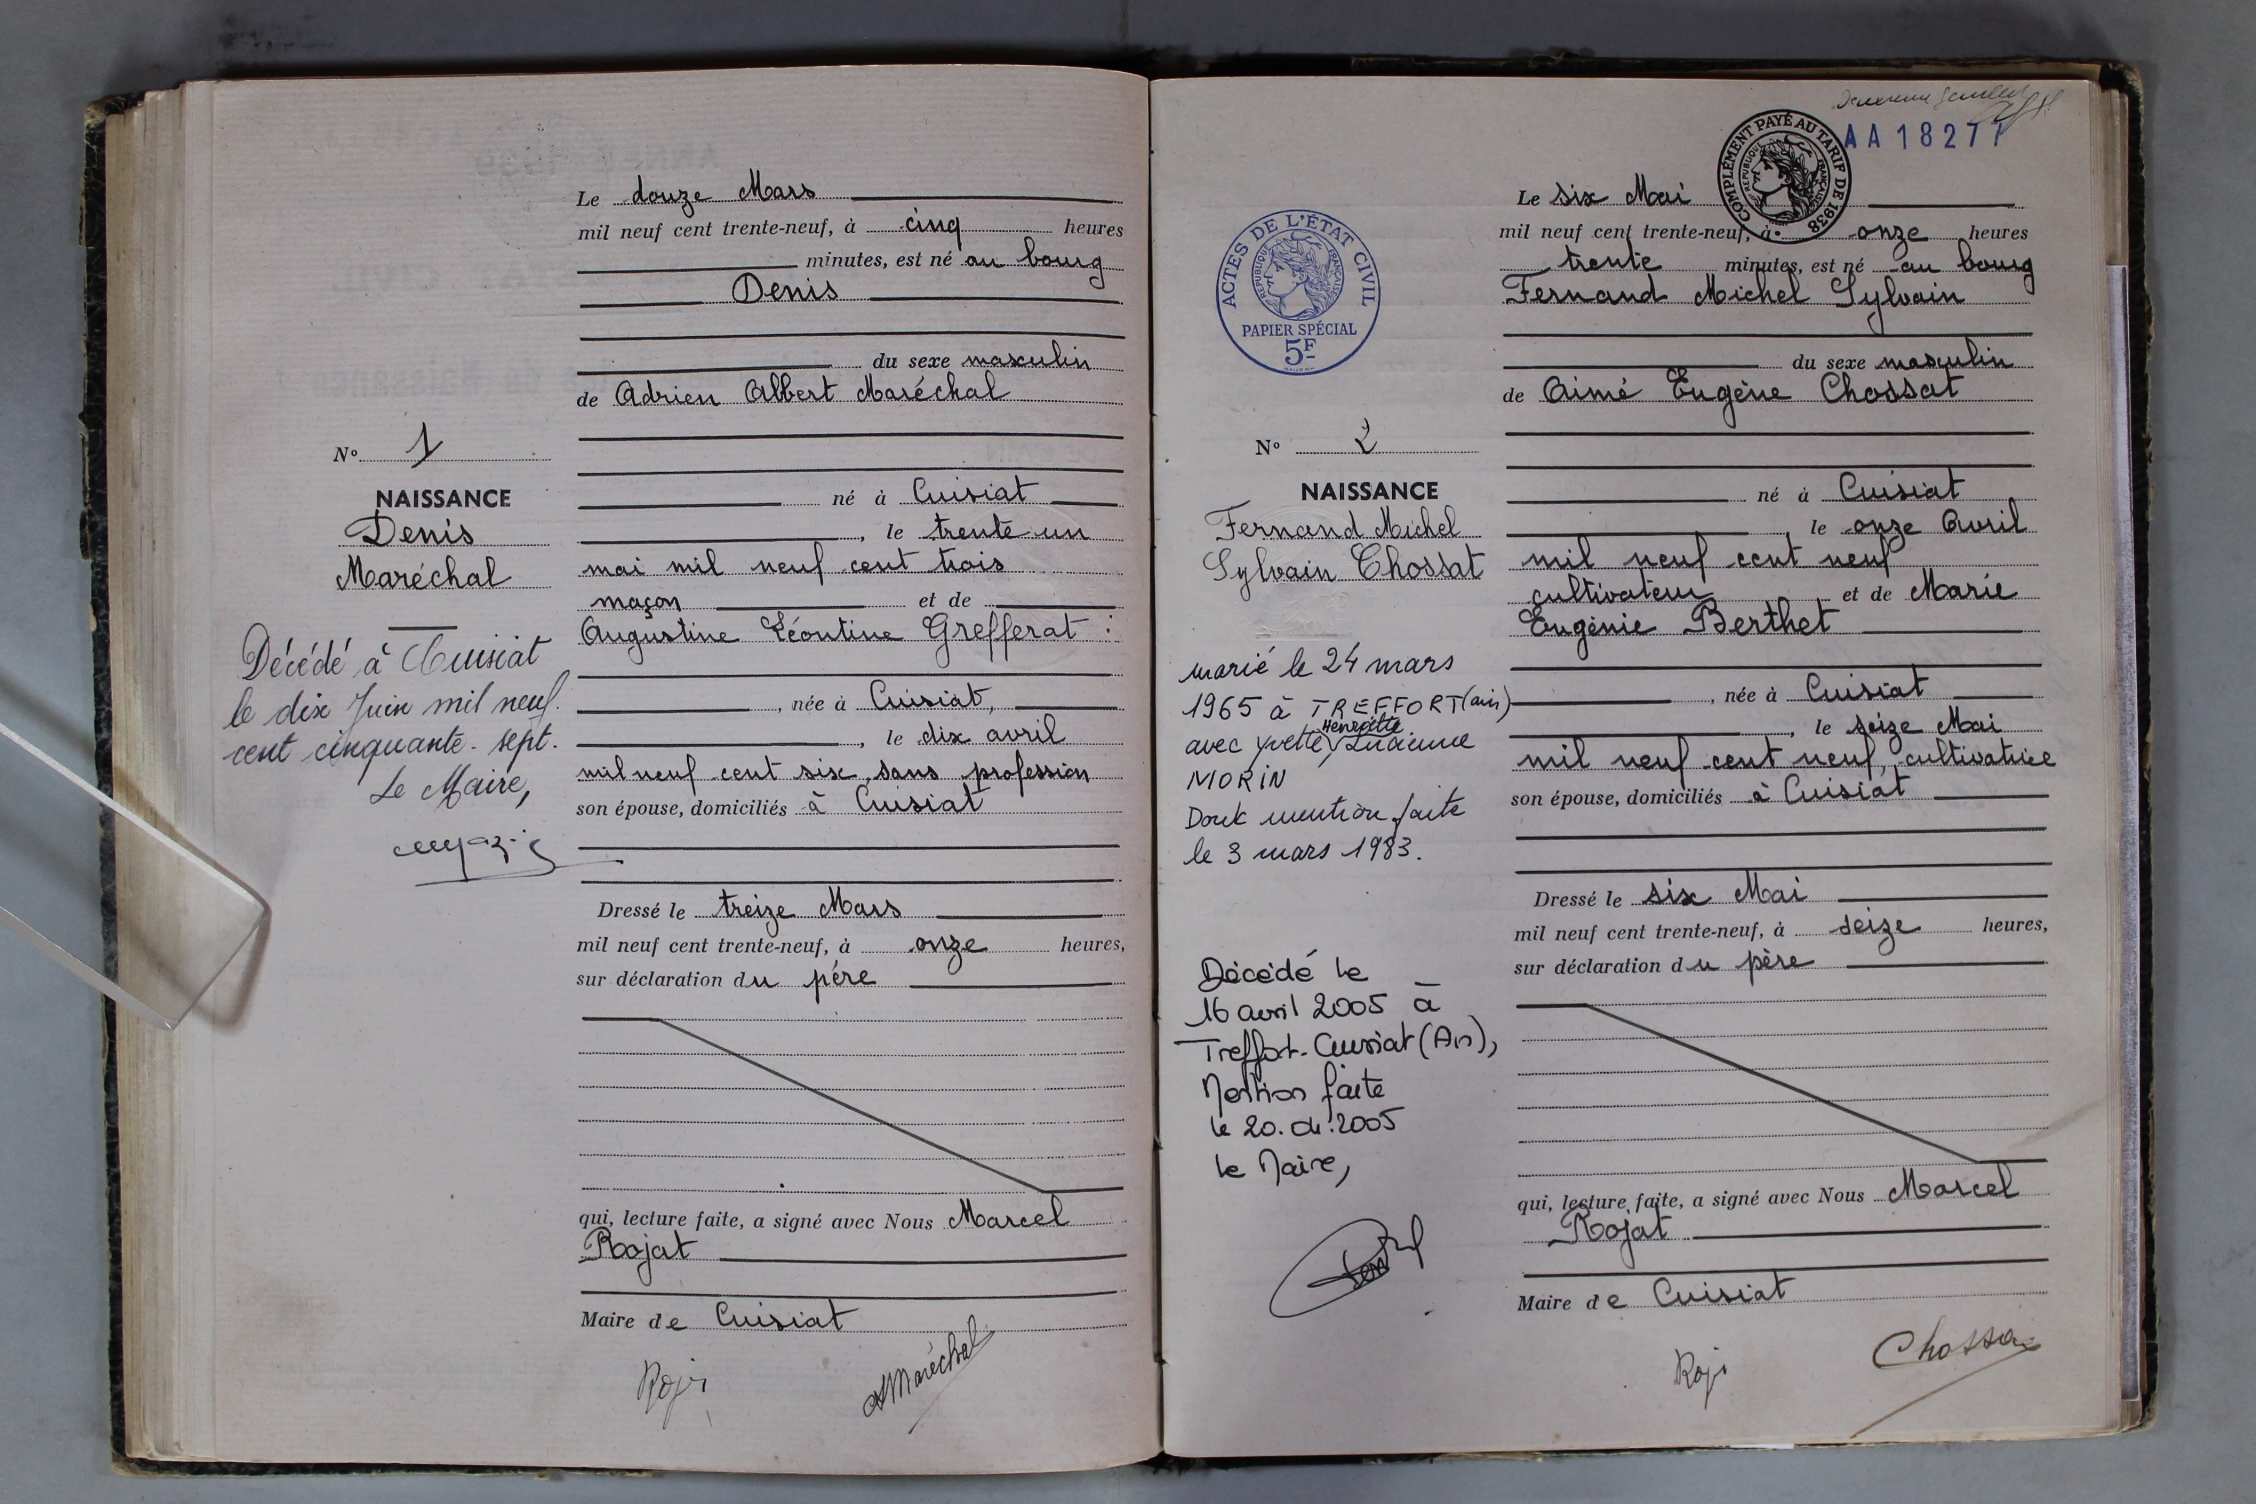 Le douze Mars
mil neuf cent trente-neuf, à cinq heures
minutes, est né au bourg
Denis
du sexe masculin
de Adrien Albert Maréchal
N° 1
né à Cuisiat
NAISSANCE
Denis
Maréchal
, le trente-un
mai mil neuf cent trois
maçon et de
Augustine Léontine Grefferat :
Décédé à Cuisiat
le dix Juin mil neuf
cent cinquante-sept.
Le Maire,
, née à Cuisiat,
, le dix avril
mil neuf cent six, sans profession
son épouse, domiciliés à Cuisiat
Dressé le treize Mars
mil neuf cent trente-neuf, à onze heures,
sur déclaration du père
qui, lecture faite, a signé avec Nous Marcel
Rojat
Maire de Cuisiat
AMaréchal
AA 18277
COMPLÉMENT PAYÉ AU TARIF DE 1938
RÉPUBLIQUE FRANÇAISE
ACTES DE L'ÉTAT CIVIL
RÉPUBLIQUE FRANÇAISE
PAPIER SPÉCIAL
5F
Le six Mai
mil neuf cent trente-neuf, à onze heures
trente minutes, est né au bourg
Fernand Michel Sylvain
du sexe masculin
de Aimé Eugène Chossat
N° 2
NAISSANCE
Fernand Michel
Sylvain Chossat
né à Cuisiat
, le onze Avril
mil neuf cent neuf
cultivateur et de Marie
Eugénie Berthet
marié le 24 mars
1965 à TREFFORT (ain)
avec Yvette, Henriette Lucienne
MORIN
Dont mention faite
le 3 mars 1983.
, née à Cuisiat
, le seize Mai
mil neuf cent neuf, cultivatrice
son épouse, domiciliés à Cuisiat
Dressé le six Mai
mil neuf cent trente-neuf, à seize heures,
sur déclaration du père
Décédé le
16 avril 2005 à
Treffort-Cuisiat (Ain),
Mention faite
le 20.04.2005
Le Maire,
qui, lecture faite, a signé avec Nous Marcel
Rojat
Maire de Cuisiat
Chossat